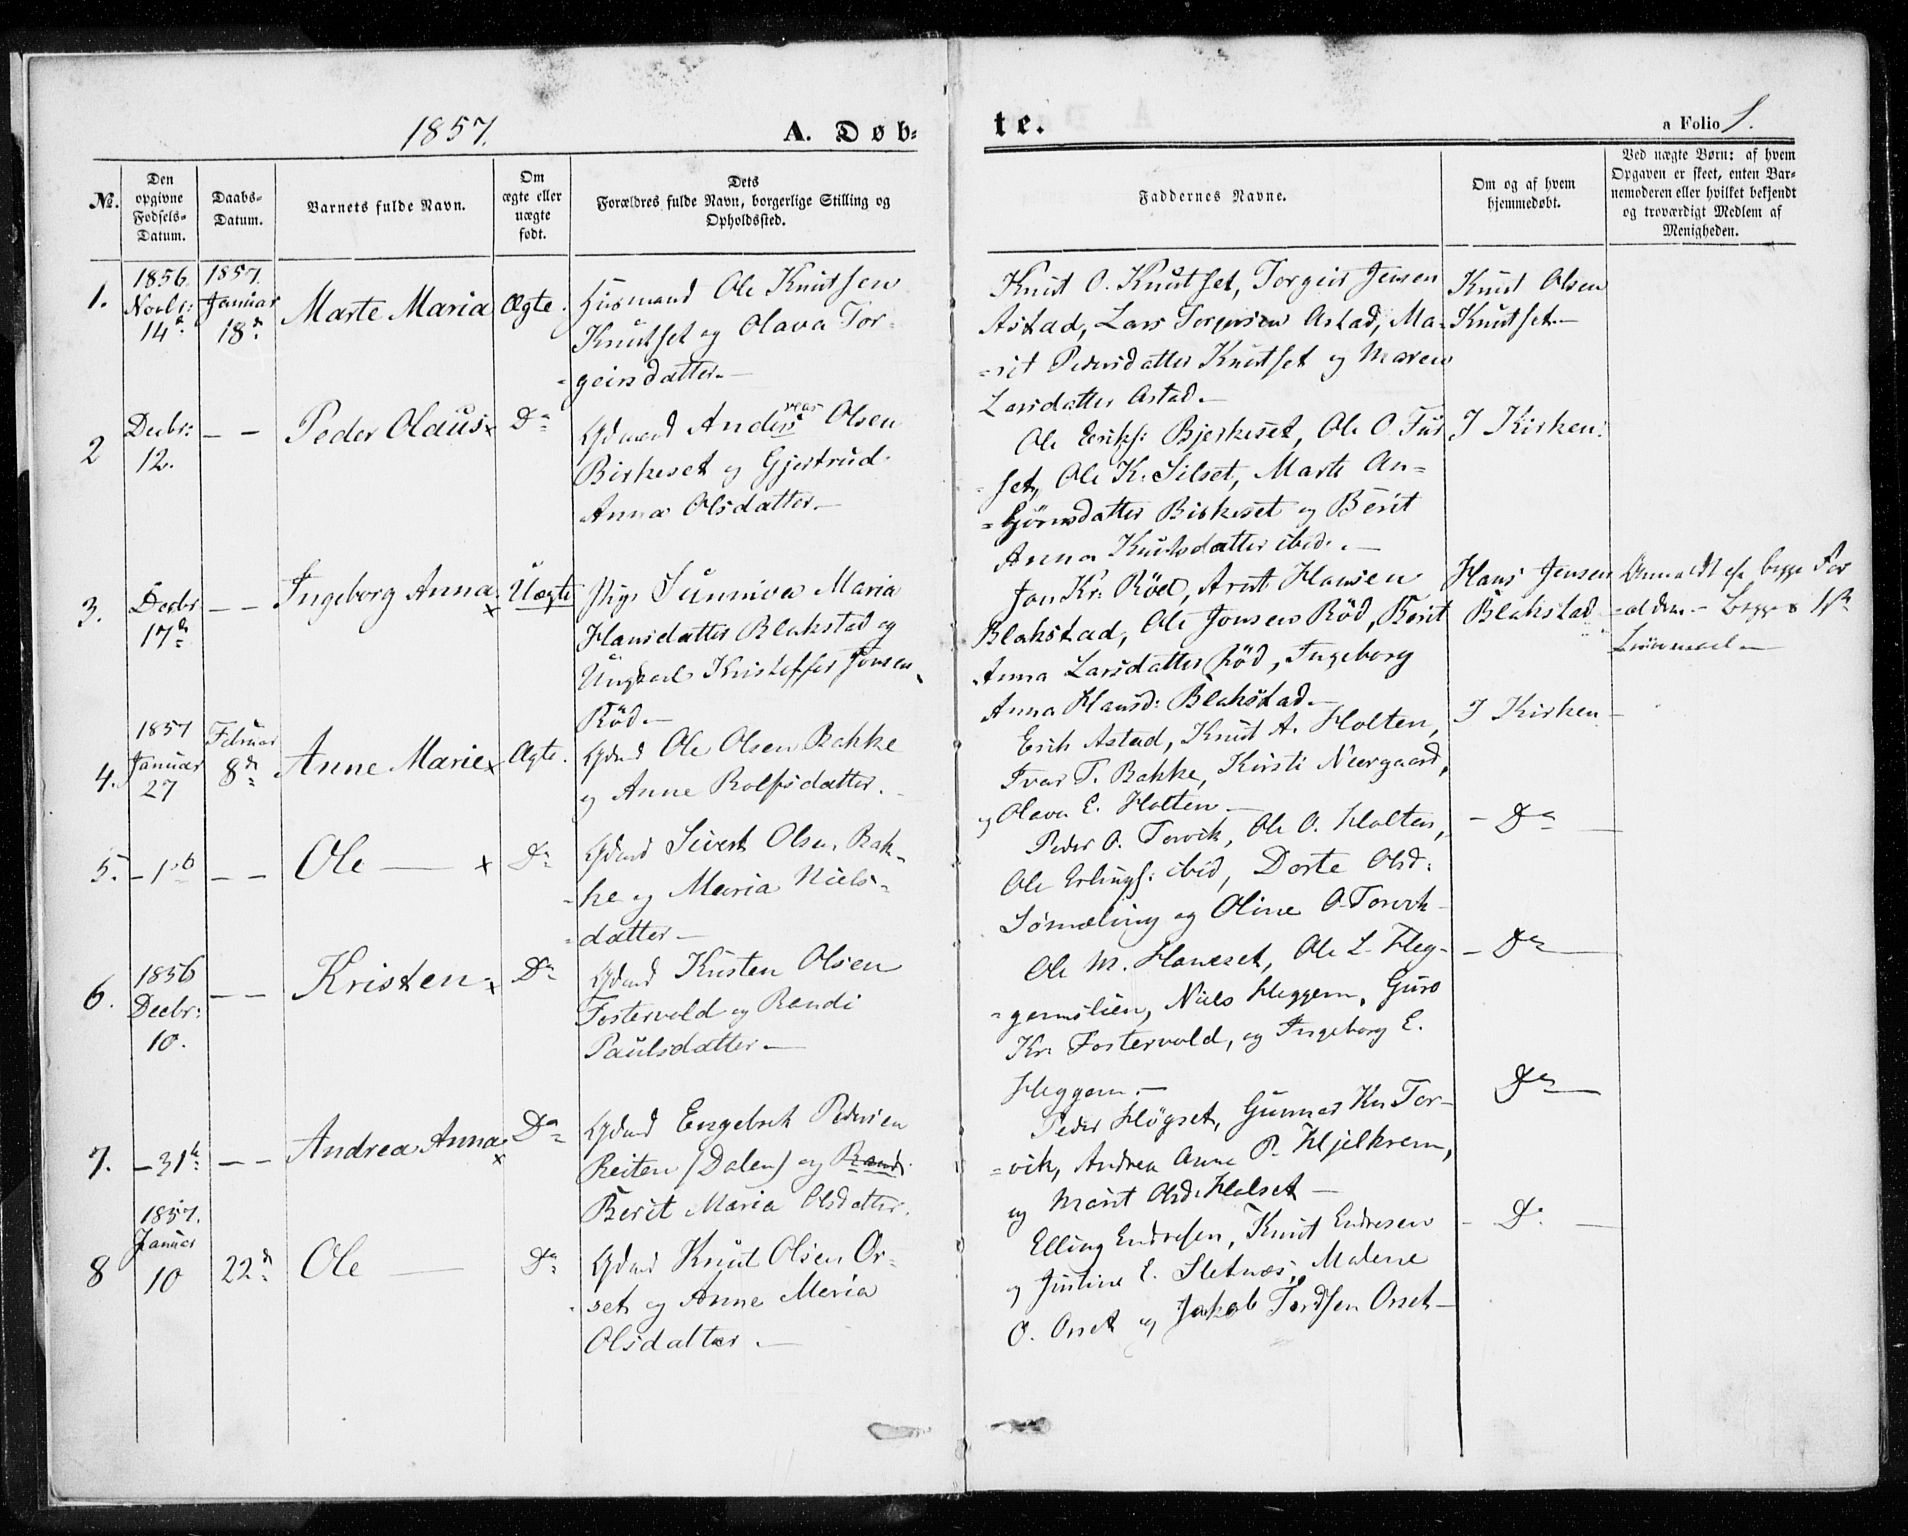 1857.
A. Døb-
te.
a Folio 1.
№.
Den opgivne Fødsels-Datum.
Daabs-Datum.
Barnets fulde Navn.
Om ægte eller uægte født.
Dets Forældres fulde Navn, borgerlige Stilling og Opholdssted.
Faddernes Navne.
Om og af hvem hjemmedøbt.
Ved uægte Børn: af hvem Opgaven er skeet, enten Barnemoderen eller hvilket bekjendt og troværdigt Medlem af Menigheden.
1.
1856
Novbr:
14de
1857.
Januar
18de
Marte Maria
Ægte.
Husmand Ole Knutsen
Knutset og Olava Tor-
-geirsdatter.—
Knut O. Knutset, Torgeir Jensen
Astad, Lars Torgersen Astad, Ma-
-rit Pedersdatter Knutset og Maren
Larsdatter Astad.—
Knut Olsen
Knutset—
2
Decbr:
12.
— —
Peder Olaus x
Do
Gdmand Anders reas Olsen
Birkeset og Gjertrud
Anna Olsdatter.—
Ole Eriks: Bjerkeset, Ole O. Fur
-set, Ole K. Silset, Marte An-
-björnsdatter Birkeset og Berit
Anna Knutsdatter ibid.—
I Kirken.
3.
Decbr
17de
— —
Ingeborg Anna. x
Uægte
Pige Sunniva Maria
Hansdatter Blakstad og
Ungkarl Kristoffer Jonsen
Röd.—
Jon Kr: Röd, Arnt Hansen
Blakstad, Ole Jonsen Röd, Berit
Anna Larsdatter Röd, Ingeborg
Anna Hansd: Blakstad.—
Hans Jensen
Blakstad
Anmeldt af begge For
-ældre.— Begges 1ste
Leiermaal.—
4.
1857
Januar
27
Februar
8de
Anne Marie x
Ægte.
Gdmd Ole Olsen Bakke
og Anne Rolfsdatter.—
Erik Astad, Knut A. Holten,
Ivar T. Bakke, Kirsti Neergaard,
og Olava E. Holten—
I Kirken—
5.
— 1
— —
Ole — x
Do
Gdmd Sivert Olsen Bak-
-ke og Maria Niels-
-datter—
Peder O. Torvik, Ole O. Holten,
Ole Erlings: ibid, Dorte Olsd:
Sörmeling og Oline O. Torvik
— Do —
6.
1856
Decbr:
10.
— —
Kristen. x
Do
Gdmd Kristen Olsen
Fostervold og Randi
Paulsdatter—
Ole M. Haneset, Ole L. Heg-
-gemslien, Niels Heggem, Guro
Kr. Fostervold, og Ingeborg E.
Heggem.—
— Do —
7.
— 31te
— —
Andrea Anna x
Do
Gdmd Engebret Pedersen
Reiten (Dalen) og Randi
Berit Maria Olsdatter.
Peder Högset, Gunnar Kn. Tor-
-vik, Andrea Anne P. Hjelkrem,
og Marit Olsd. Halset—
Do —
8
1857.
Januar
10
22de
Ole —
Do
Gdmd Knut Olsen Or-
-set og Anne Maria
Olsdatter.—
Elling Endresen, Knut Endresen
og Justine E. Sletnæs, Malene
O. Orset og Jakob Tordsen Orset—
— Do —